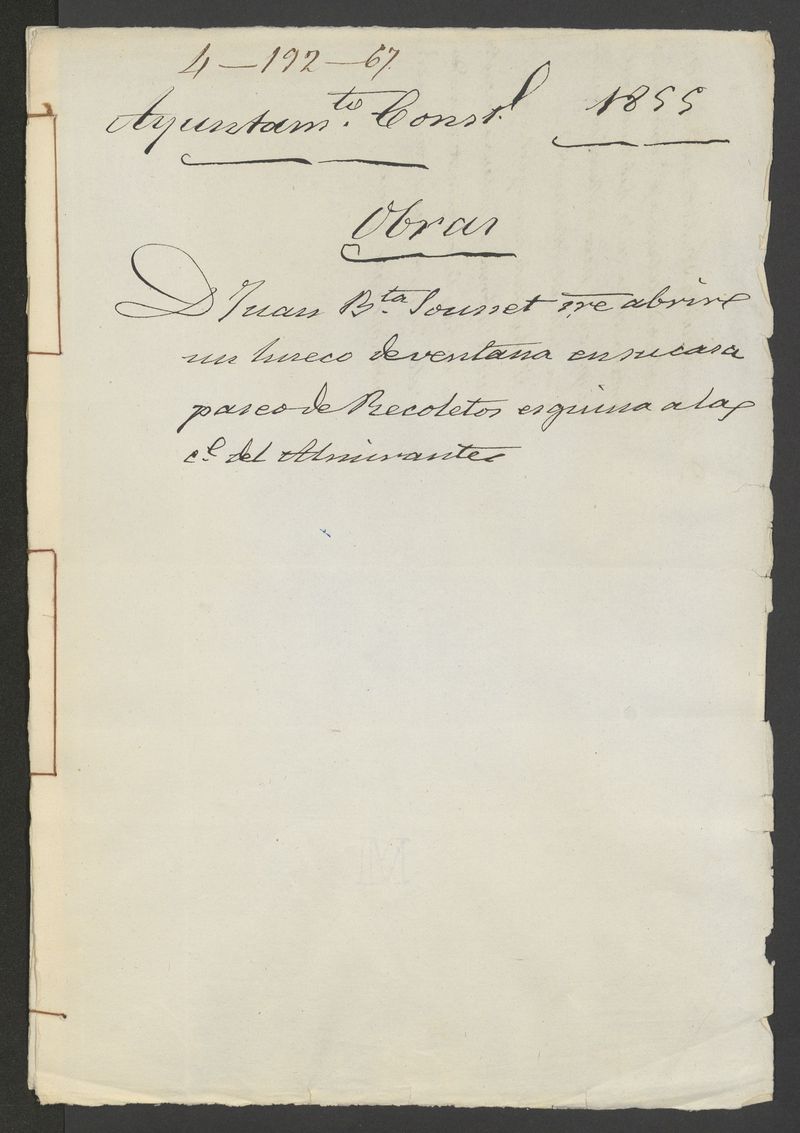 4-192-67
Ayuntam.to Const.l 1855
Obras
D Juan B.ta Sousset sre abrir
un hueco de ventana en su casa
paseo de Recoletos esquina a la
c.e del Almirante
M